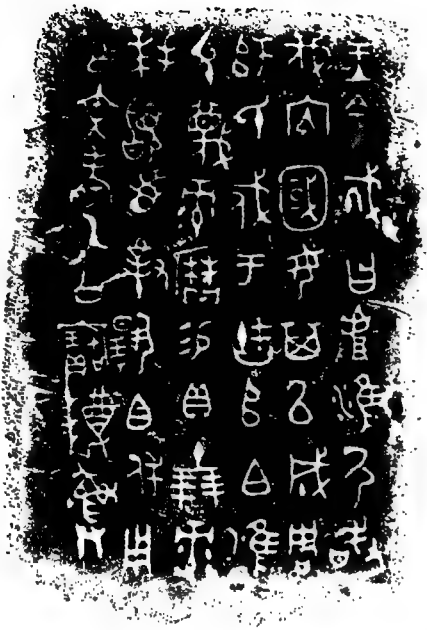 王令𢦚曰𠭯淮尸敢
伐內國女其以成周
師氏戍于古𠂤白雍
父蔑录曆易貝十朋录
拜𩒨首對揚白休用
乍文考乙公寶尊彝